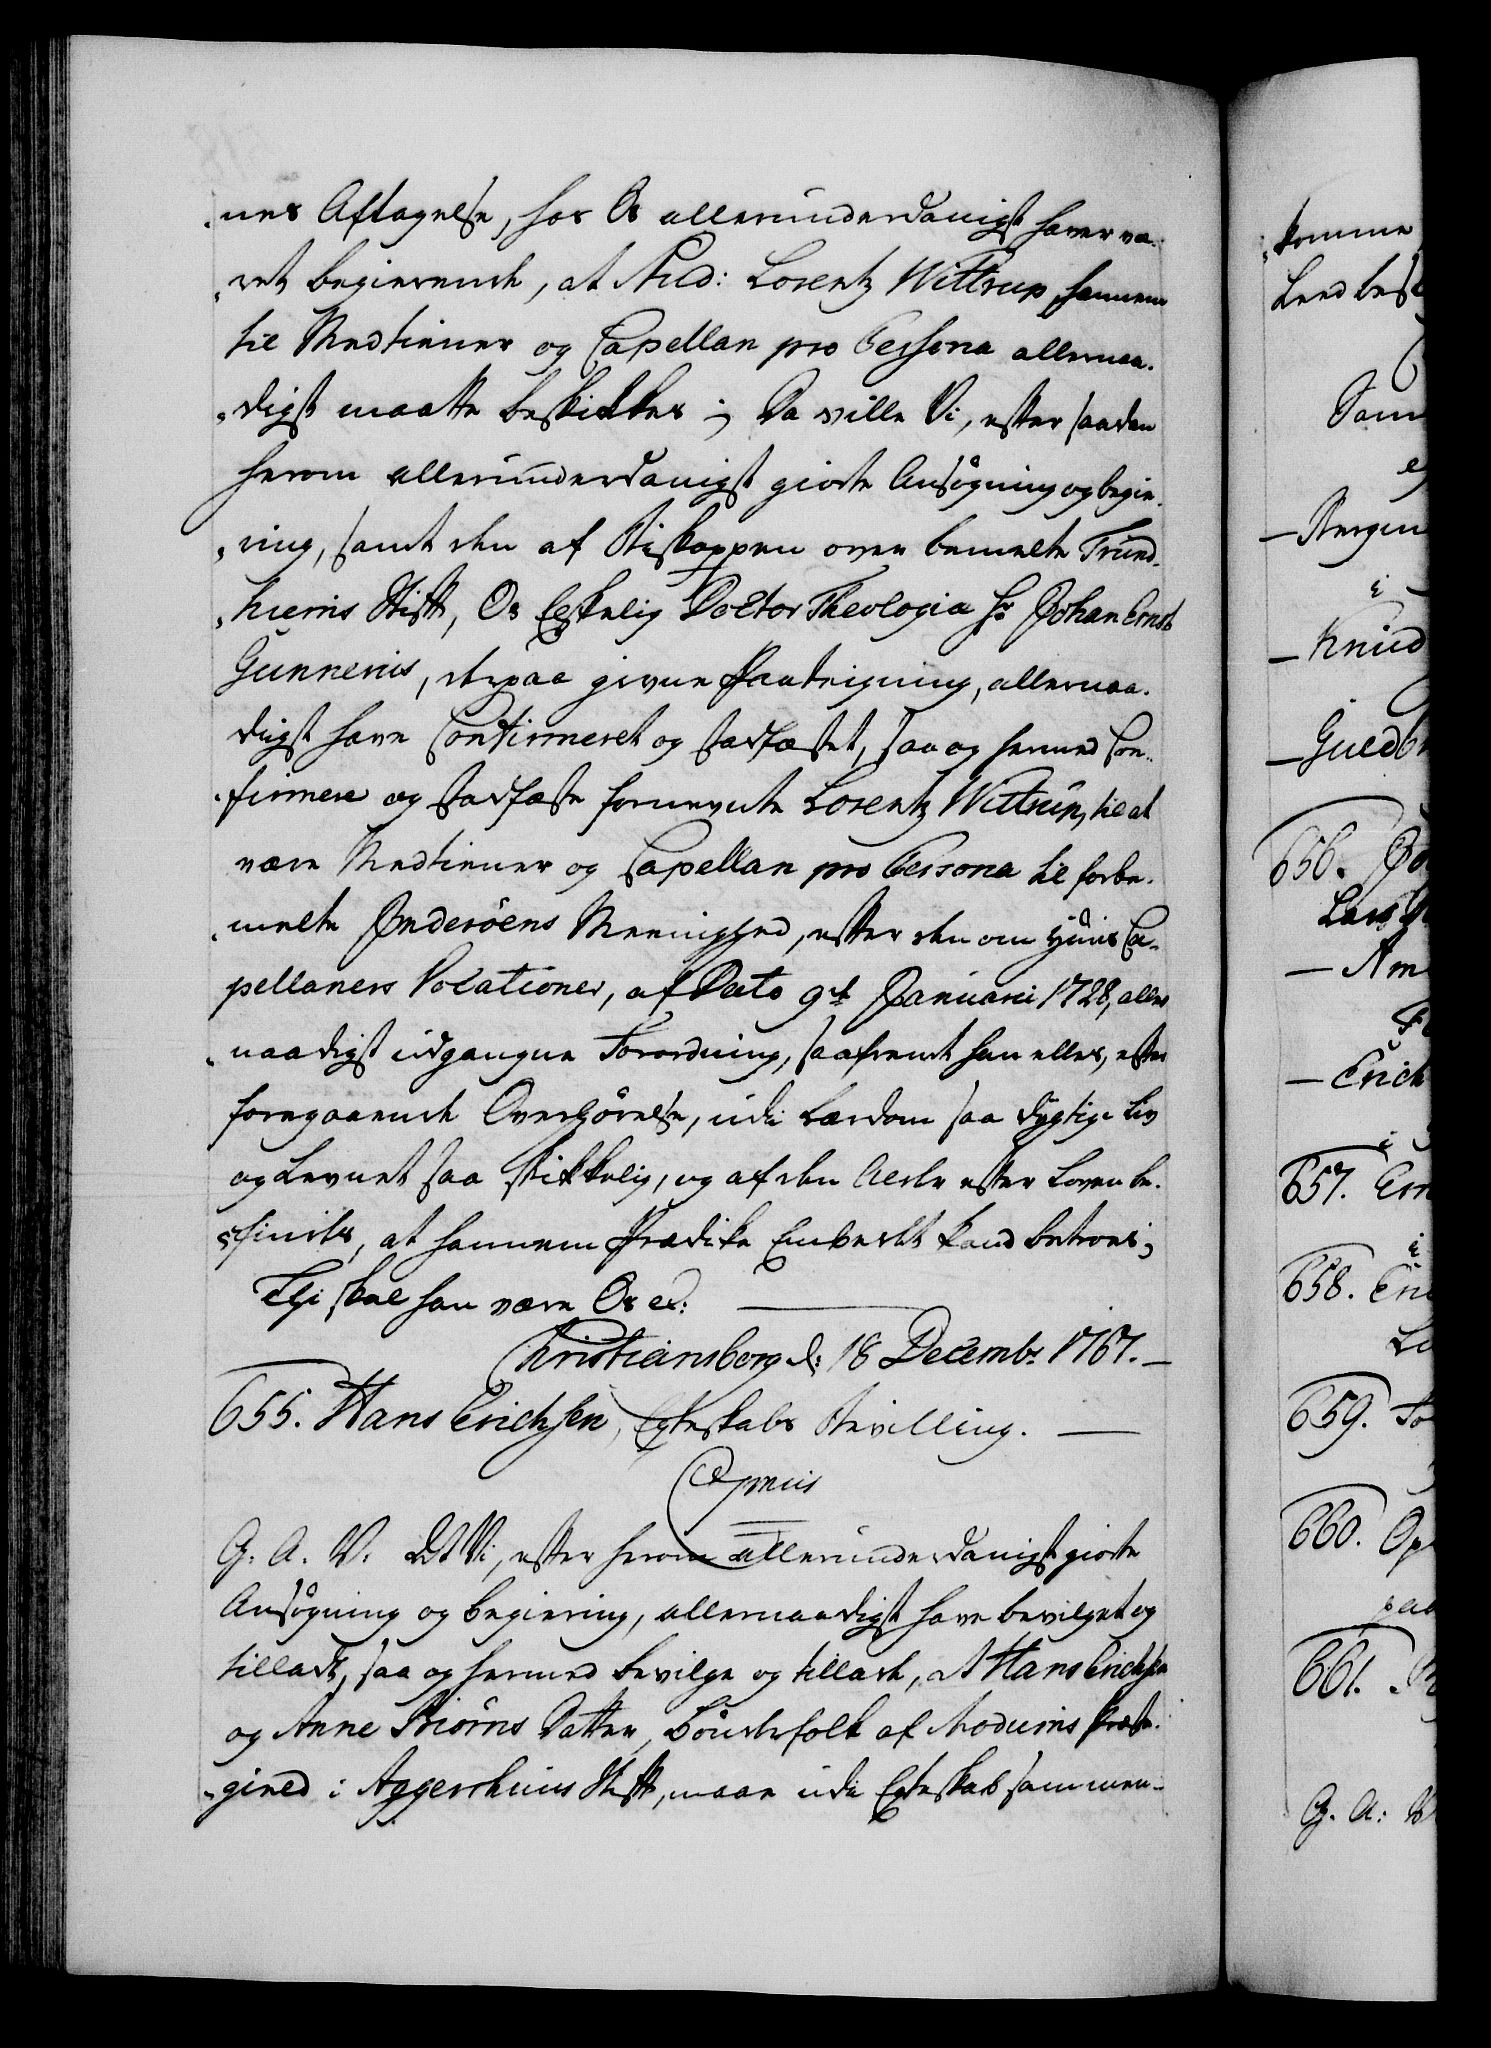 nes Aftagelse, hos Os allerunderdanigst haver væ-
ret begierende, at Stud: Lorentz Wittrup hannem
til Medtiener og Capellan pro Persona allernaa-
digst maatte beskikkes; Da ville Vi, efter saadan
herom allerunderdanigst giorte Ansøgning og begie-
ring, samt den af Biskoppen over bemelte Trund-
hiems Stift, Os Elskelig Doctor Theologia Hr Johan Ernst
Gunnerus, derpaa givne Paategning, allernaa-
digst have Confirmeret og stadfæstet, saa og hermed Con-
firmere og stadfæste fornevnte Lorentz Wittrup, til at
være Medtiener og Capellan pro Persona til forbe-
melte Inderøens Meenighed, efter den om Hiine Ca-
pellaners Vocationer, af Dato 9de Januarii 1728, aller-
naadigst udgangne Forordning, saafremt han ellers, efter
foregaaende Overhørelse, udi Lærdom saa dygtig, Liv
og Levnet saa skikkelig, og af den Alder efter Loven be-
findes, at hannem Prædike Embedet kand betroes;
Thi skal han være Os ec:
Christiansborg d: 18 Decembr 1767.
655. Hans Erichsen, Egteskabs Bevilling.
Gratis
G. A. V. At Vi, efter herom allerunderdanigst giorte
Ansøgning og begiering, allernaadigst have bevilget og
tilladt, saa og hermed bevilge og tillade, at Hans Erichsen
og Anne Biørns Datter, Bønderfolk af Modums Præste-
gield i Aggershuus Stift, maae udi Egteskab sammen-
komme
Knud
656.
657.
658.
659.
660.
661.
G. A: